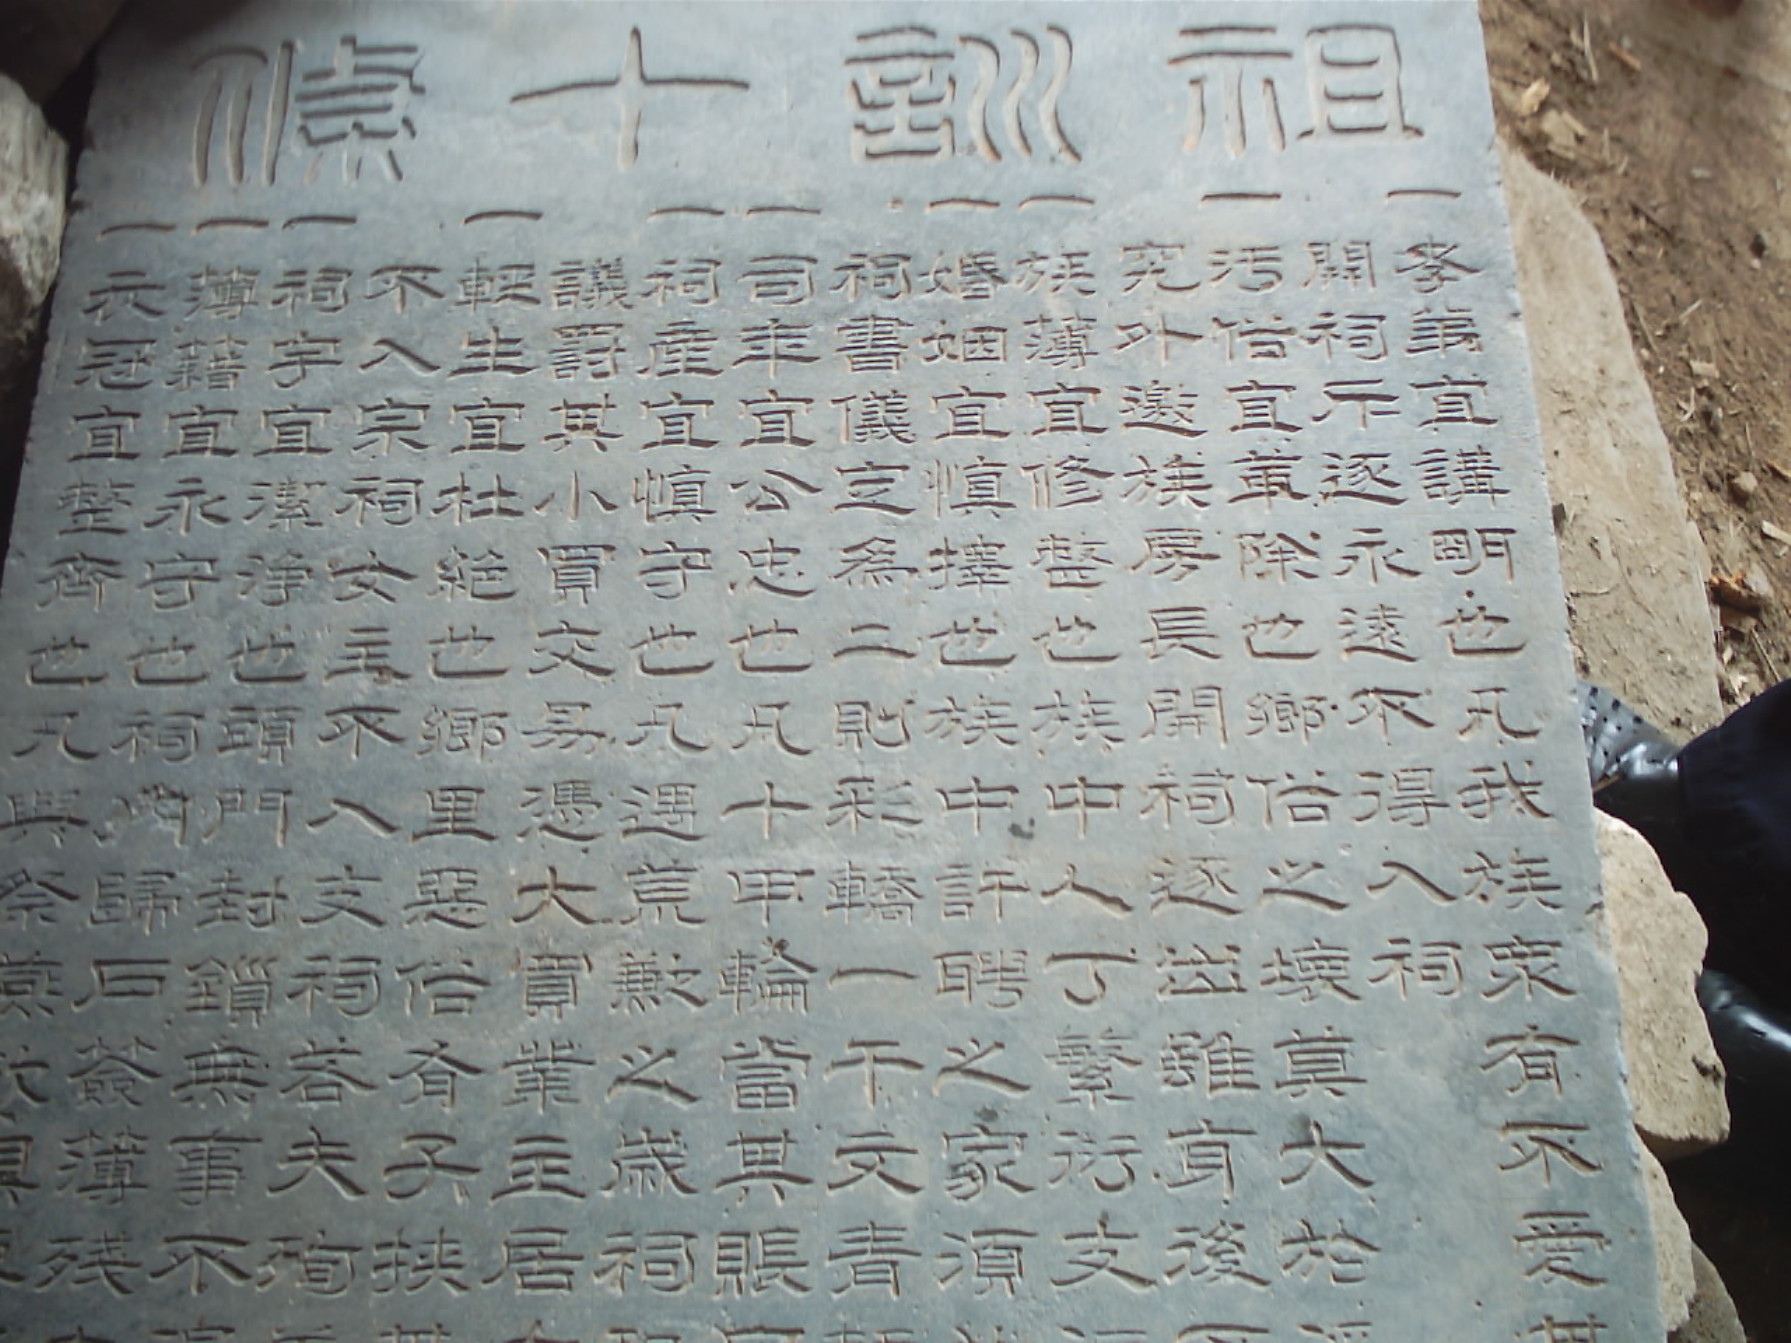 祖訓十條
一孝弟宜講明也凡我族眾有不愛其
開祠斥逐永遠不得入祠
一污俗宜革除也鄉俗之壞莫大於淫
究外邀族房長開祠逐出雖有後不
一族薄宜修整也族中人丁繁衍支派
一婚姻宜慎擇也族中許聘之家須
祠書儀定為二則彩轎一千文青轎
一司年宜公忠也凡十甲輪當其賬
一祠產宜慎守也凡遇荒歉之歲祠
議罸其小買交易憑大買業主居
一輕生宜杜絕也鄉里惡俗有子挾
不入宗祠女主不入支祠若夫殉
一祠宇宜潔淨也頭門封鎖無事不
一薄籍宜永守也祠門歸戶簽薄殘
一衣冠宜整齊也凡與祭